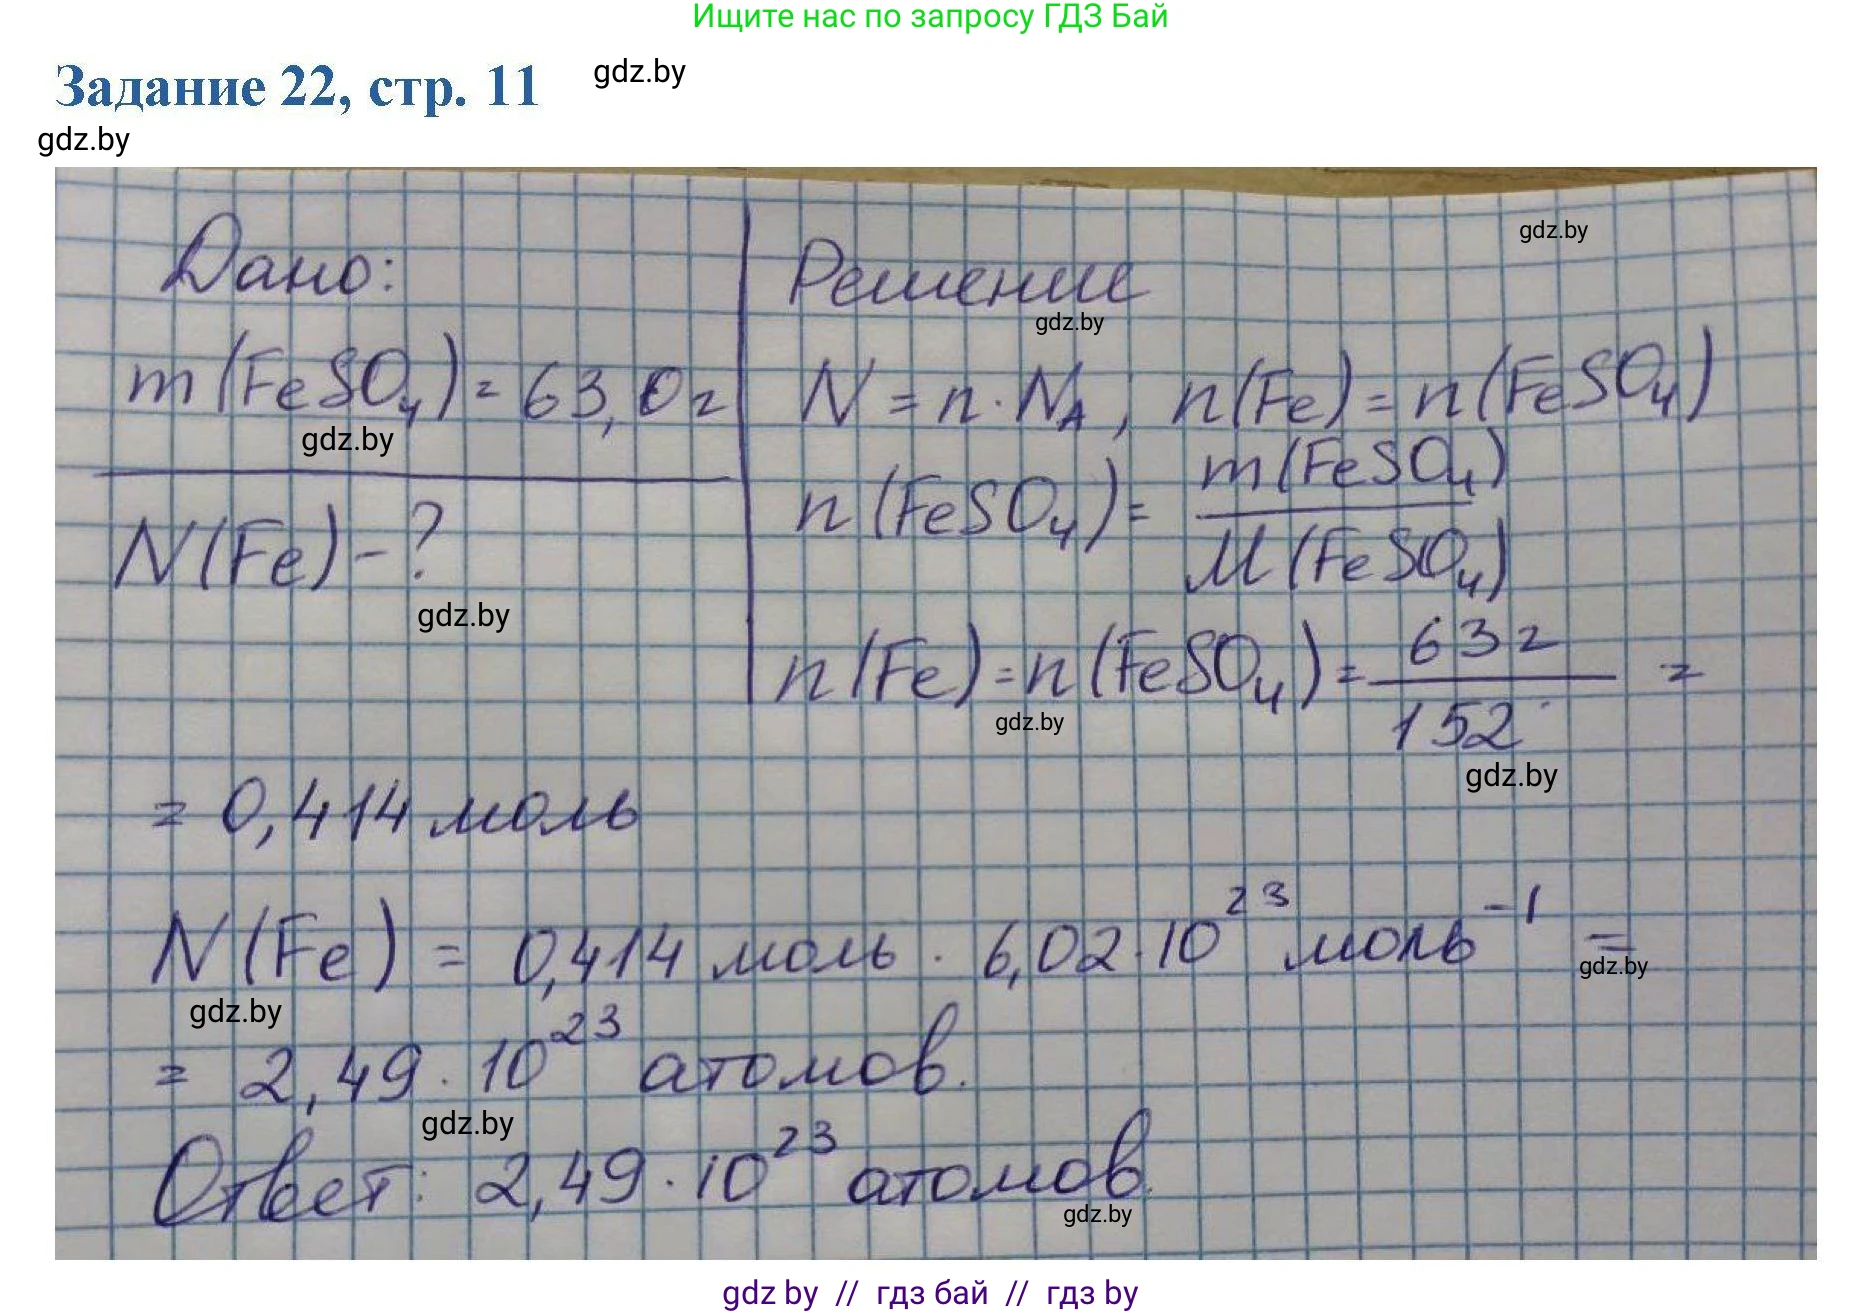 Ищите нас по запросу ГДЗ Бай
Задание 22, стр. 11
gdz.by
gdz.by
gdz.by
Дано:
Решение
gdz.by
m(FeSO₄) = 63,0 г
N = n · N_A ; n(Fe) = n(FeSO₄)
gdz.by
n(FeSO₄) = m(FeSO₄) / M(FeSO₄)
N(Fe) - ?
gdz.by
n(Fe) = n(FeSO₄) = 63 г / 152 =
gdz.by
gdz.by
= 0,414 моль
N(Fe) = 0,414 моль · 6,02 · 10²³ моль⁻¹ =
gdz.by
gdz.by
= 2,49 · 10²³ атомов.
gdz.by
Ответ: 2,49 · 10²³ атомов.
gdz.by
gdz by // гдз бай // гдз by